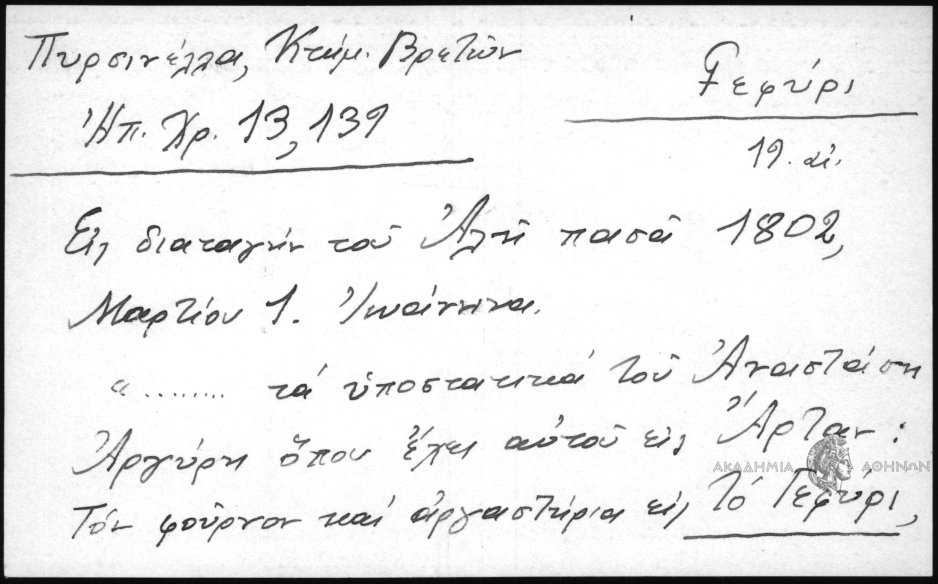 Πυρσινέλλα, Κτήμ. Βρετῶν
Ἠπ. Χρ. 13, 139
Γεφύρι
19. αἰ.
Εἰς διαταγήν τοῦ Ἀλῆ πασᾶ 1802,
Μαρτίου 1. Ἰωάννινα.
" ........ τά ὑποστατικά τοῦ Ἀναστάση
Ἀργύρη ὅπου ἔχει αὐτοῦ εἰς Ἄρταν:
Τόν φοῦρνον καί ἀργαστήρια εἰς τό Γεφύρι,
ΑΚΑΔΗΜΙΑ ΑΘΗΝΩΝ